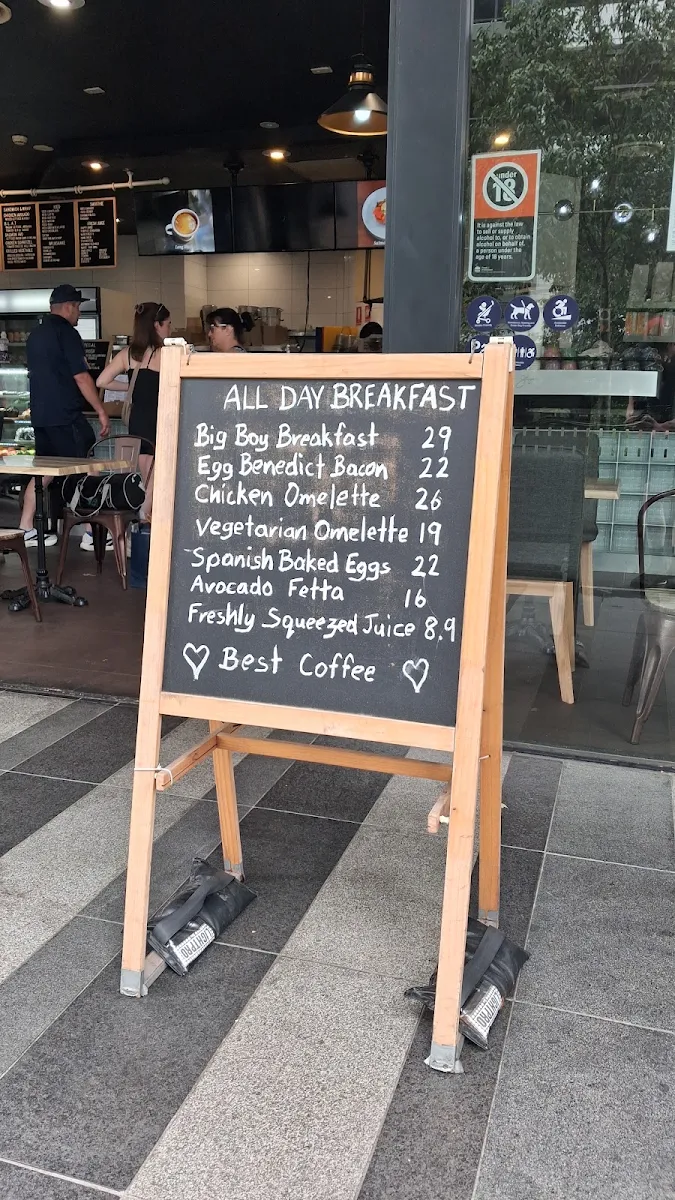 ALL DAY BREAKFAST
Big Boy Breakfast 29
Egg Benedict Bacon 22
Chicken Omelette 26
Vegetarian Omelette 19
Spanish Baked Eggs 22
Avocado Fetta 16
Freshly Squeezed Juice 8.9
Best Coffee
under
18
It is against the law
to sell or supply
alcohol to, or to obtain
alcohol on behalf of,
a person under the
age of 18 years.
LIGHTPRO
LIGHTPRO